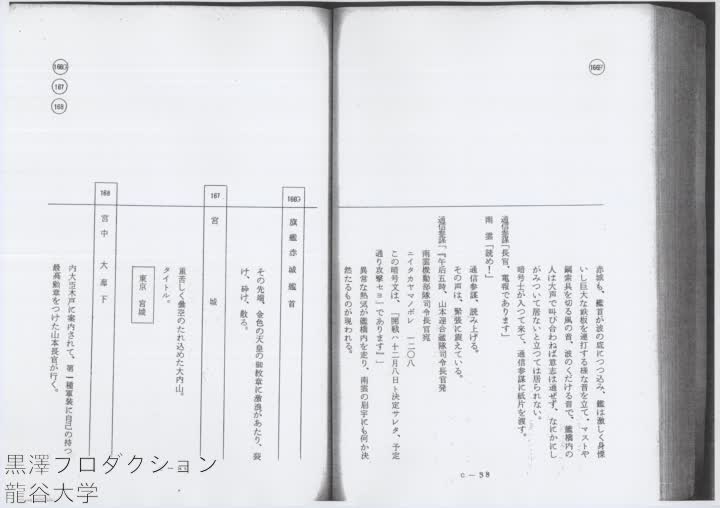 166F
赤城も、艦首が波の底につつ込み、艦は激しく身慄
いし巨大な鉄板を連打する様な音を立て、マストや
鋼索具を切る風の音、波のくだける音で、艦橋内の
人は大声で叫び合わねば意志は通ぜず、なにかにし
がみついて居ないと立つては居られない。
暗号士が入つて来て、通信参謀に紙片を渡す。
通信参謀「長官、電報であります」
南雲「読め！」
通信参謀、読み上げる。
その声は、緊張に震えている。
通信参謀「『午后五時、山本連合艦隊司令長官発
南雲機動部隊司令長官宛
ニイタカヤマノボレ 一二〇八
この暗号文は、『開戦ハ十二月八日ト決定サレタ、予定
通り攻撃セヨ』であります』」
異常な熱気が艦橋内を走り、南雲の眉宇にも何か決
然たるものが現われる。
C－38
166G
167
168
166G 旗艦赤城艦首
その先端、金色の天皇の御紋章に激浪があたり、裂
け、砕け、散る。
167 宮城
重苦しく曇空のたれ込めた大内山。
タイトル。
東京 宮城
168 宮中 大廊下
内大臣木戸に案内されて、第一種軍装に自己の持つ
最高勲章をつけた山本長官が行く。
黒澤プロダクション
龍谷大学